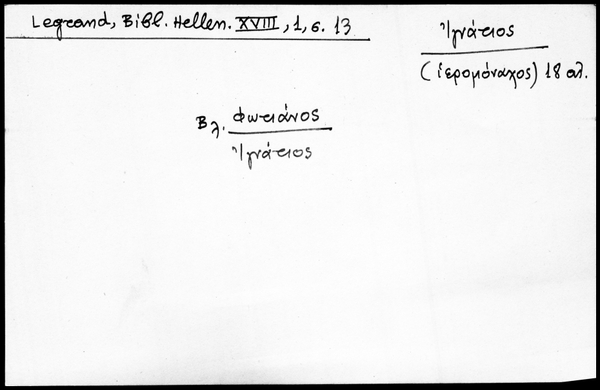 Legrand, Bibl. Hellen. XVIII, 1, σ. 13
Ἰγνάτιος
(ἱερομόναχος) 18 αἰ.
Βλ. Φωτιάνος
Ἰγνάτιος